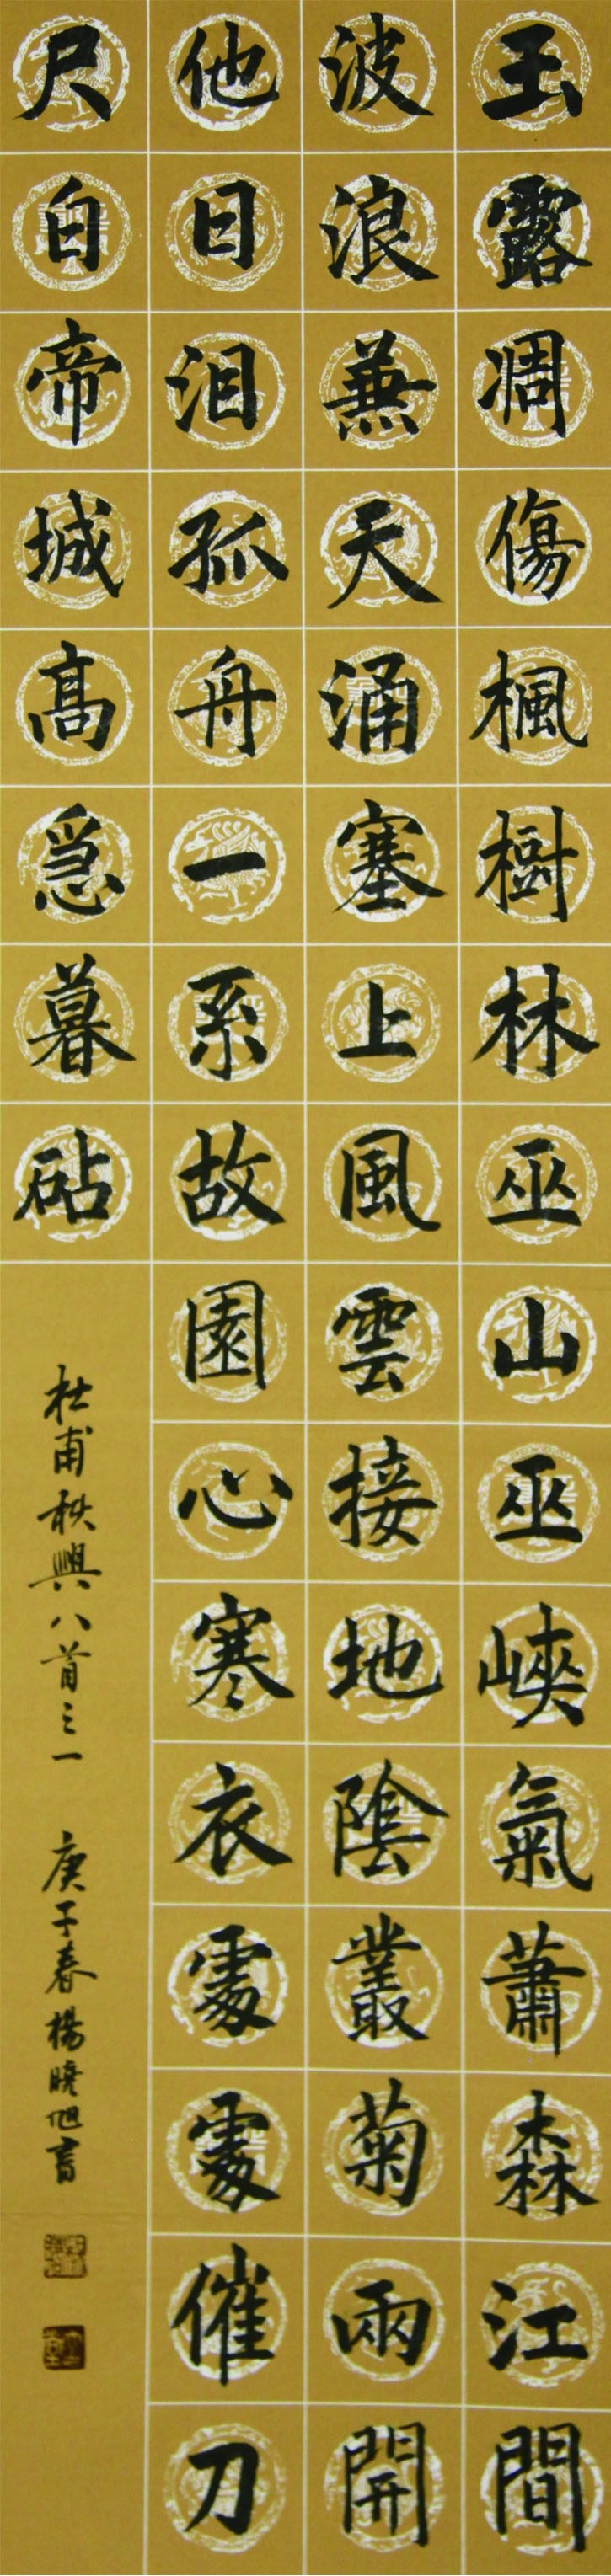 玉露凋傷楓樹林巫山巫峽氣蕭森江間
波浪蒹天涌塞上風雲接地陰叢菊兩開
他日泪孤舟一系故園心寒衣處處催刀
尺白帝城高急暮砧
杜甫秋興八首之一 庚子春楊曉旭書